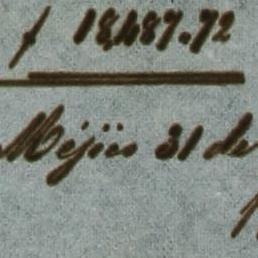 $ 18,487.72
Méjico 31 de